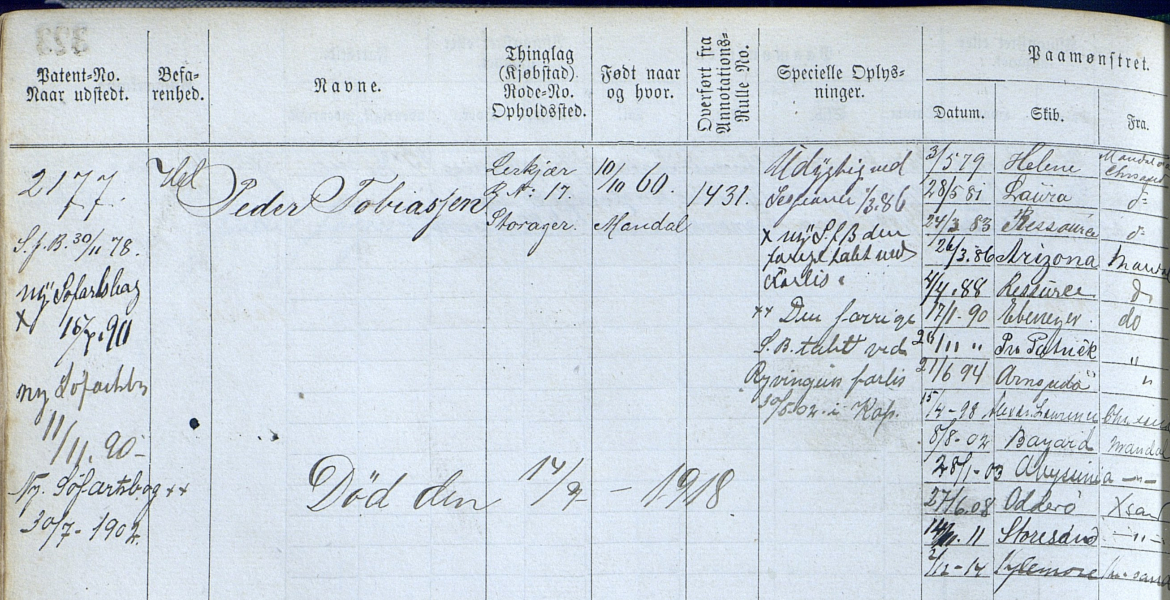 323
Patent-No.
Naar udstedt.
Befa-
renhed.
Navne.
Thinglag
(Kjøbstad).
Rode-No.
Opholdssted.
Født naar
og hvor.
Overført fra
Annotations-
Rulle No.
Specielle Oplys-
ninger.
Paamønstret.
Datum.
Skib.
Fra.
2177
S.f.B. 30/11 78.
ny Søfartsbog
x
ny
11/11.90-
Ny. Søfartsbog xx
30/7-1902.
Hel
Peder Tobiassen
Død den 14/9 - 1918
R. No: 17.
Storager.
10/10 60.
Mandal
1431.
Udygtig ved
Sessionen 1/3.86
x ny S.f.B den
forrige tabt ved
Forlis.
xx Den forrige
S.B. tabt ved
Ryvingens forlis
30/5.02. i Kap.
3/5 79 Helene
28/5 81 Laura do
24/3 83 Ressource do
26/3.86 Arizona
4/4.88 Ressurce do
17/1.90 Ebenezer do
26/11 " "
21/6 94 "
15/4-98
8/8-02 Bayard Mandal
28/1-03 Abyssinia -"-
27/6.08 Odderø Xsand
11 Storesand -"-
2/12-14